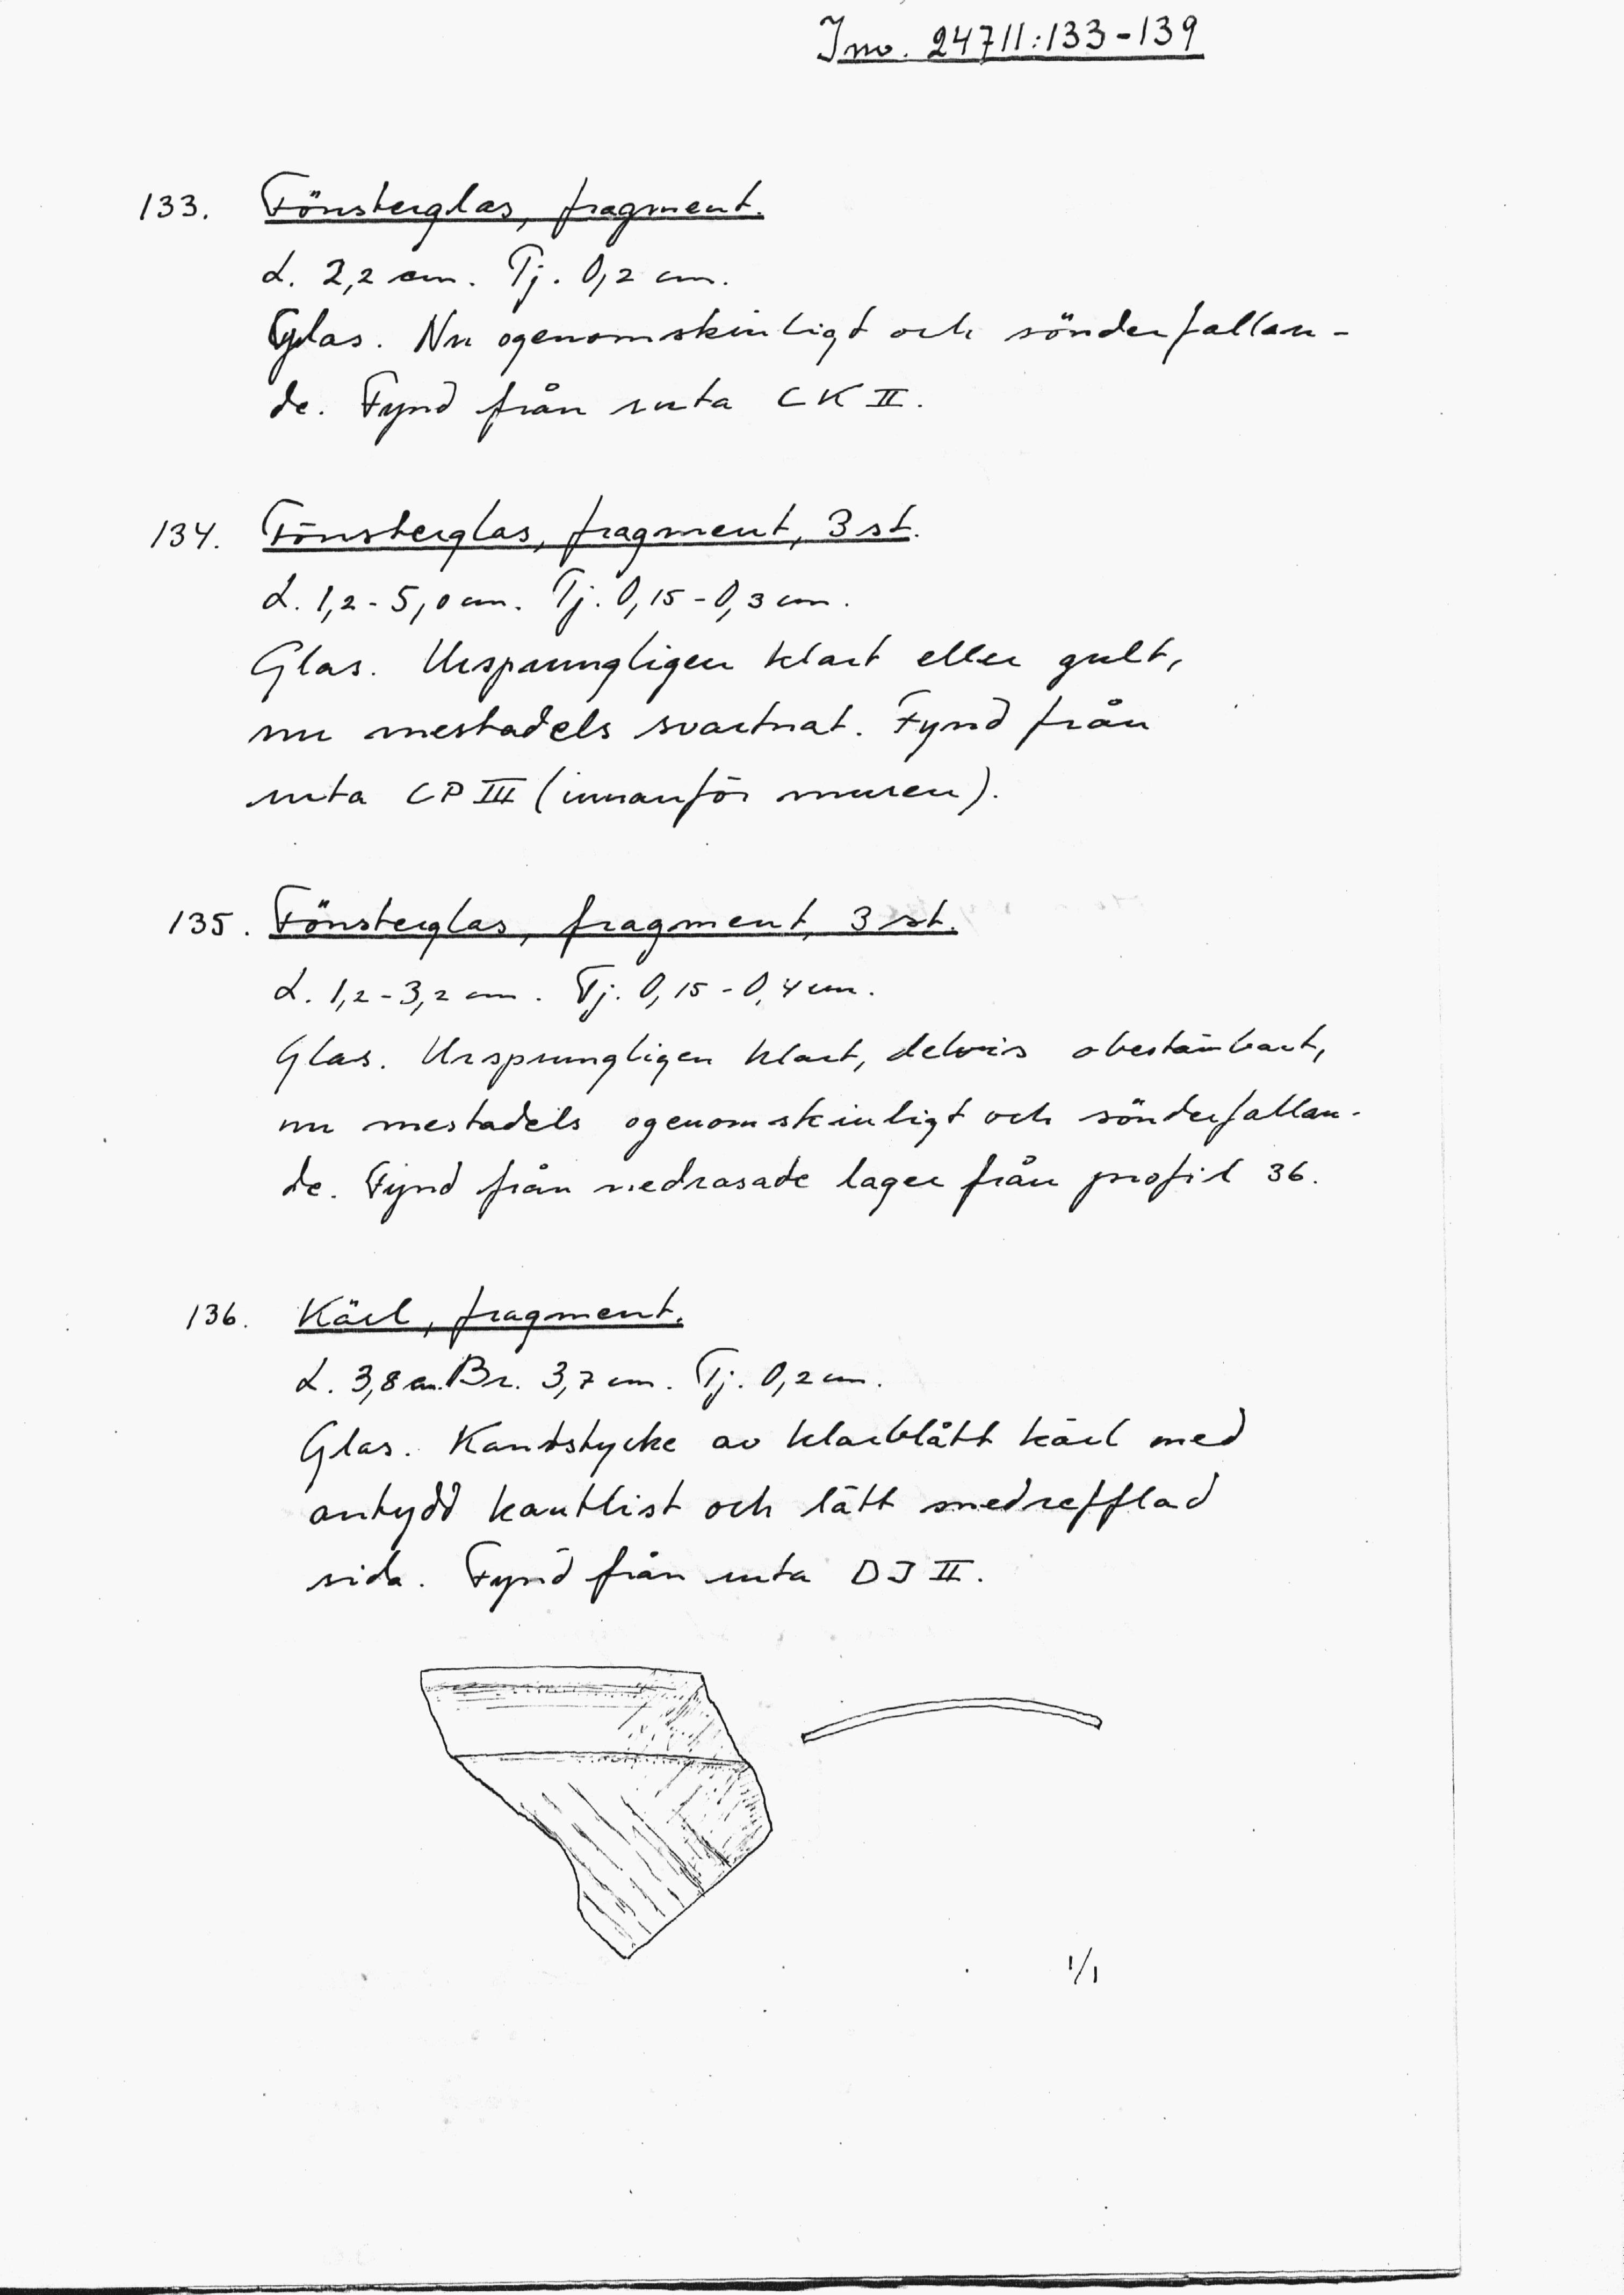 Inv. 24711:133-139
133. Fönsterglas, fragment.
L. 2,2 cm. Tj. 0,2 cm.
Glas. Nu ogenomskinligt och sönderfallan-
de. Fynd från ruta CK II.
134. Fönsterglas, fragment, 3 st.
L. 1,2-5,0 cm. Tj. 0,15-0,3 cm.
Glas. Ursprungligen klart eller gult,
nu mestadels svartnat. Fynd från
ruta CP III (innanför muren).
135. Fönsterglas, fragment, 3 st.
L. 1,2-3,2 cm. Tj. 0,15-0,4 cm.
Glas. Ursprungligen klart, delvis obestämbart,
nu mestadels ogenomskinligt och sönderfallan-
de. Fynd från nedrasade lager från profil 36.
136. Kärl, fragment.
L. 3,8 cm. Br. 3,7 cm. Tj. 0,2 cm.
Glas. Kantstycke av klarblått kärl med
antydd kantlist och lätt snedrefflad
sida. Fynd från ruta DJ II.
1/1